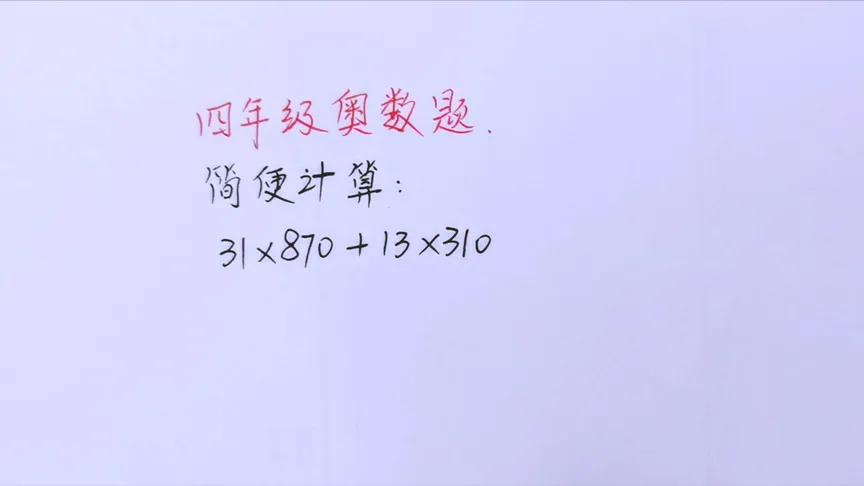 四年级奥数题.
简便计算:
31×870+13×310